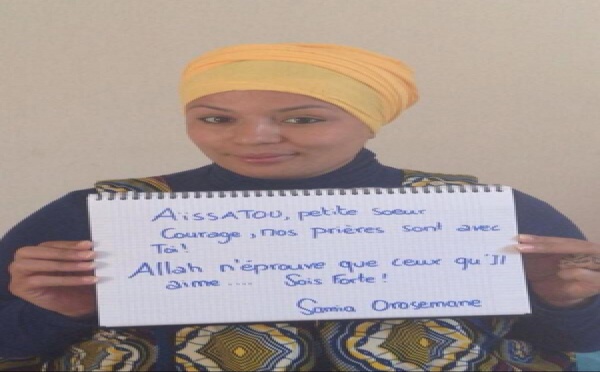 AïSSATOU, petite soeur
Courage, nos prières sont avec
Toi!
Allah n'éprouve que ceux qu'Il
aime .... Sois Forte!
Samia Orosemane